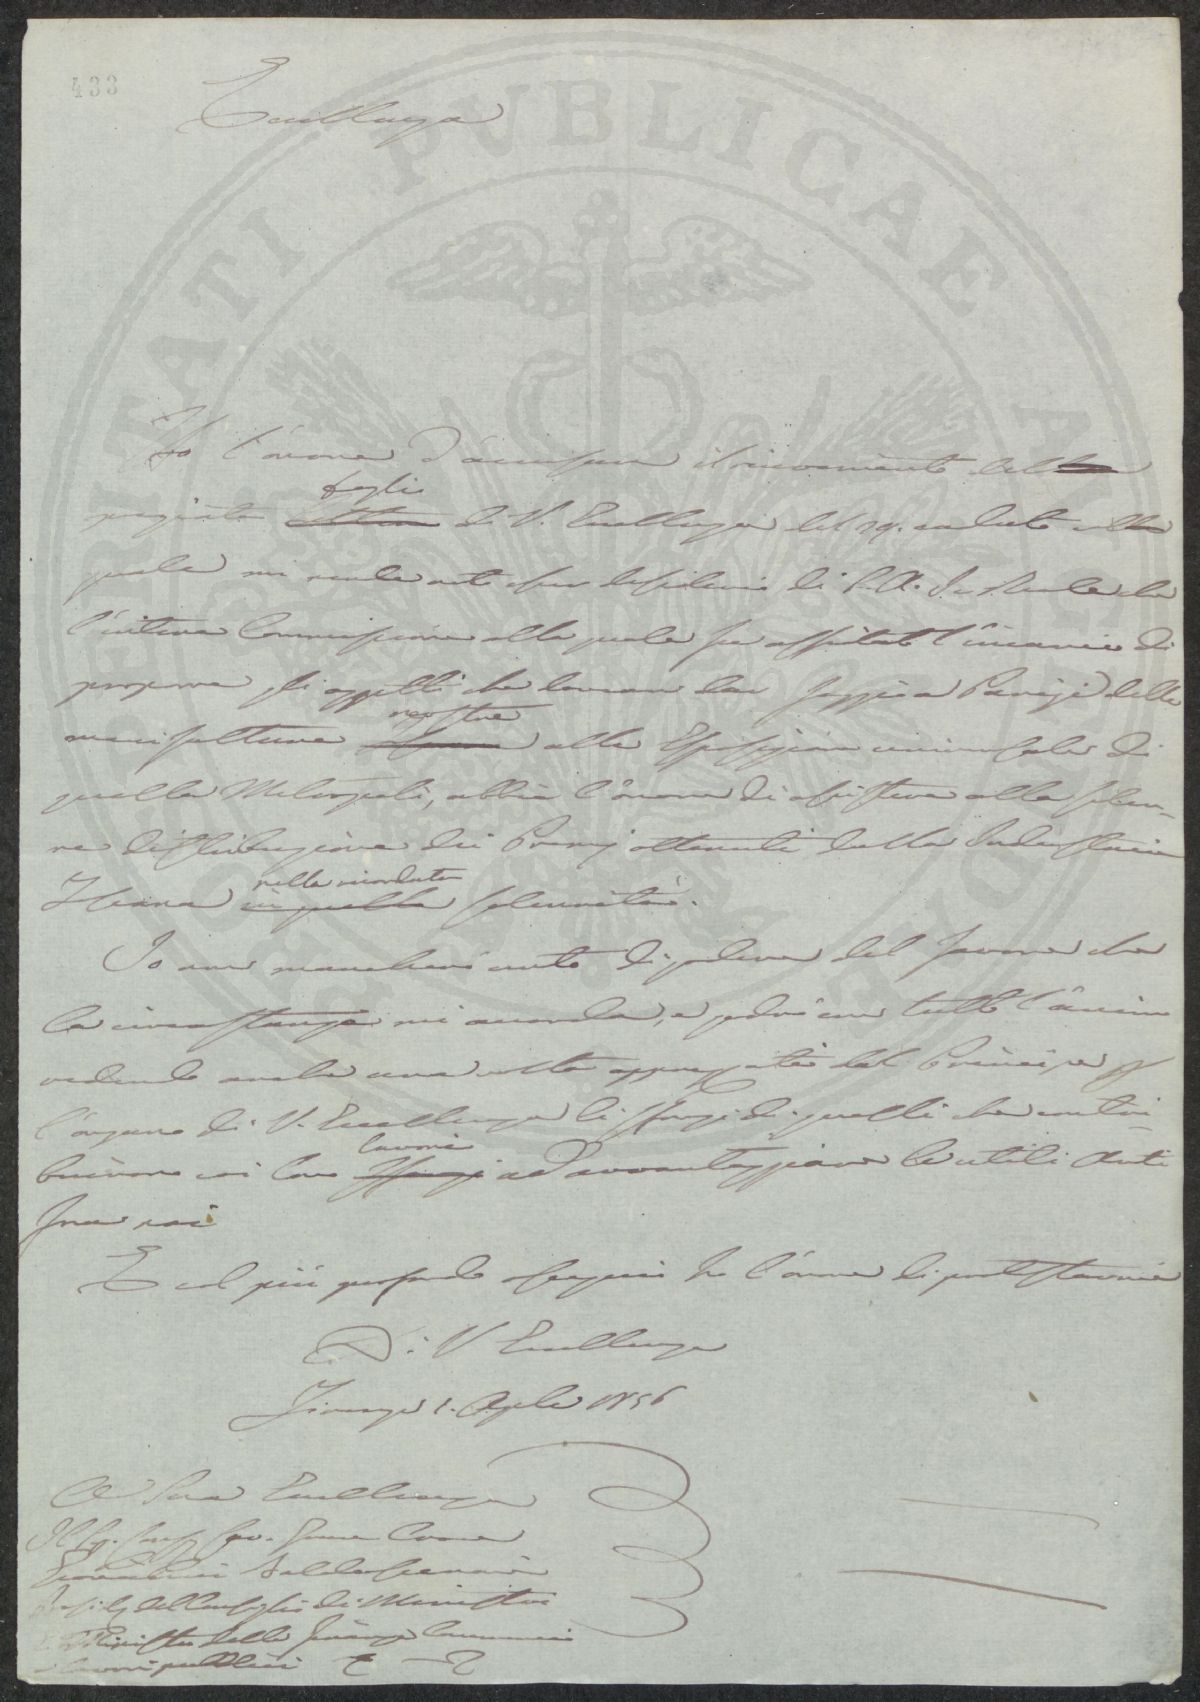 433
Eccellenza
Ho l'onore d'accusare il ricevimento del
foglio
pregiato di V. Eccellenza del 29. caduto
quale mi rende noto esser desiderio di S. A. I. e Reale che
l'intera Commissione alla quale fu affidato l'incarico di
proporre gli oggetti che devon dar saggio a Parigi delle
nostre
manifatture alla Esposizione universale di
quella Metropoli, abbia l'onore di assistere alla solen-
ne distribuzione dei Premj ottenuti dalla Industria
nella ricordata
Toscana in quella solennità.
Io non mancherò certo di godere del favore che
la circostanza mi accorda, e godrò con tutto l'animo
vedendo anche una volta apprezzati dal Principe per
l'organo di V. Eccellenza li sforzi di quelli che contri-
lavori
buirono coi loro sforzi ad avvantaggiare le utili Arti
fra noi
E col più profondo ossequio ho l'onore di protestarmi
Di V. Eccellenza
Firenze 1. Aprile 1856
A Sua Eccellenza
Il Sig. Cav.
Baldasseroni
Presid. del Consiglio di Ministri
e Ministro delle Finanze Commercio
e Lavori pubblici
PROSPERITATI PVBLICAE AVGENDAE